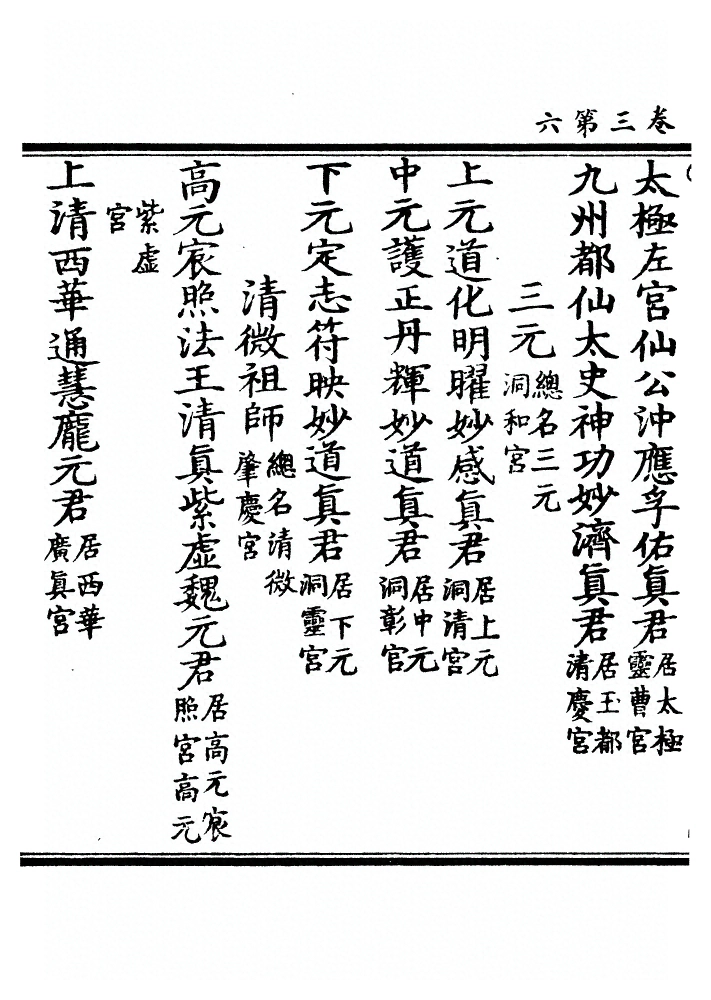 卷三第六
太極左宮仙公沖應孚佑眞君居太極靈曹宮
九州都仙太史神功妙濟眞君居玉都清慶宮
三元總名三元洞和宮
上元道化明曜妙感眞君居上元洞清宮
中元護正丹輝妙道眞君居中元洞彰宮
下元定志符映妙道眞君居下元洞靈宮
清微祖師總名清微肇慶宮
高元宸照法王清眞紫虛魏元君居高元宸照宮高元
紫虛宮
上清西華通慧龐元君居西華廣眞宮